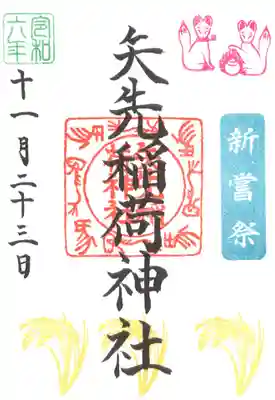 新嘗祭
矢先稲荷神社
令和
六年
十一月二十三日